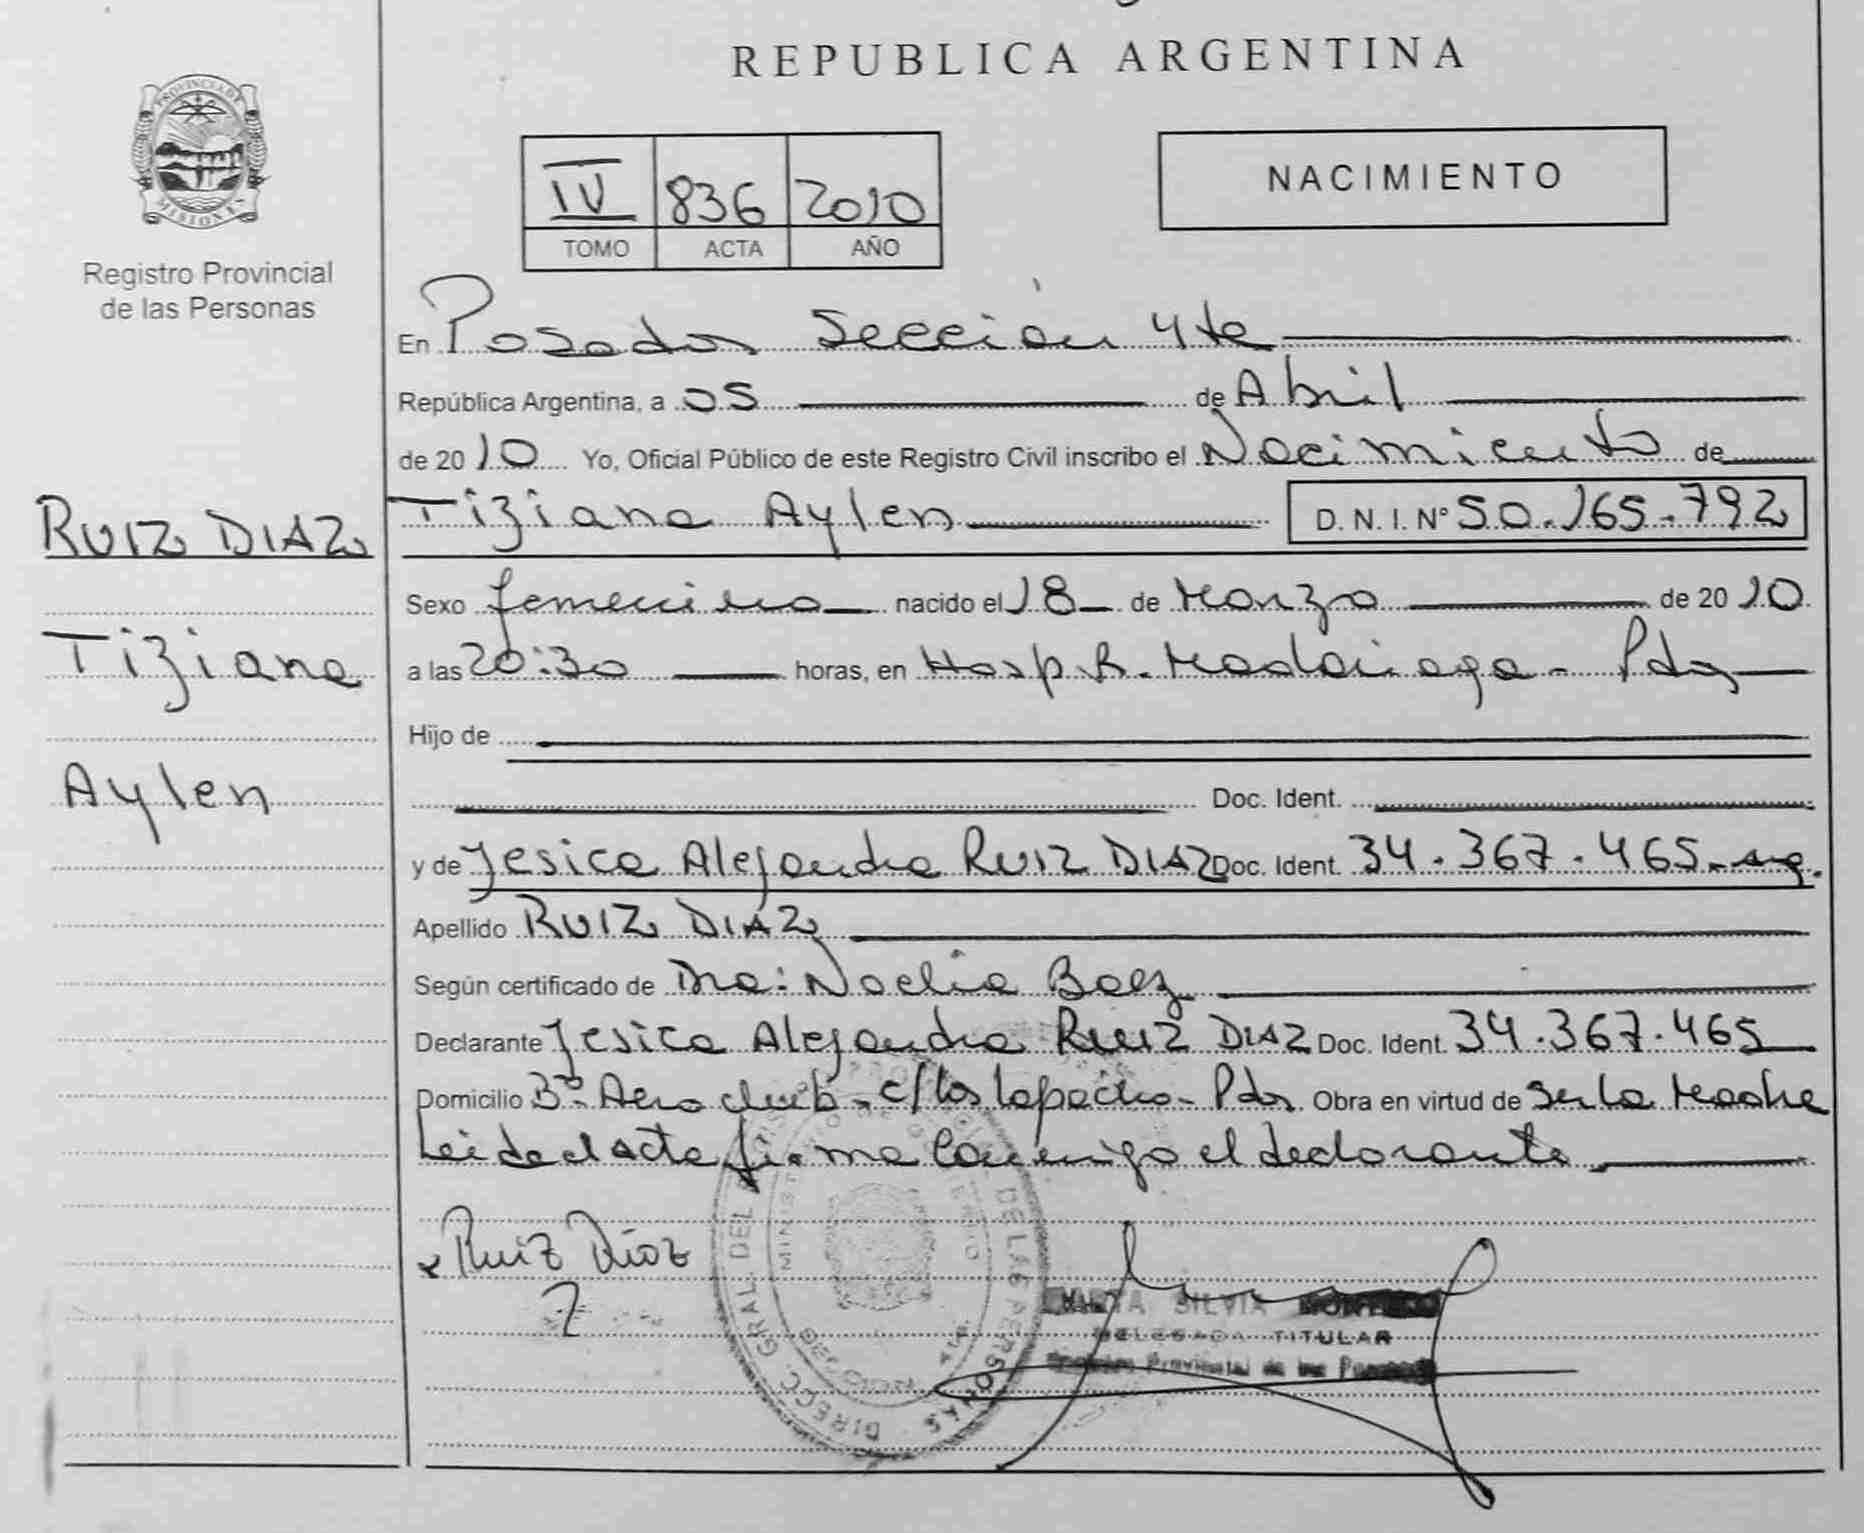 REPUBLICA ARGENTINA
PROVINCIA DE
MISIONES
Registro Provincial
de las Personas
IV 836 2010
TOMO ACTA AÑO
NACIMIENTO
En Posadas Sección 4ta
República Argentina, a 05 de Abril
de 2010 Yo, Oficial Público de este Registro Civil inscribo el Nacimiento de
RUIZ DIAZ
Tiziana Aylen D. N. I. Nº 50.165.792
Sexo femenino nacido el 18 de Marzo de 2010
Tiziana
a las 20:30 horas, en Hosp. R. Madariaga - Pdas
Hijo de
Aylen
Doc. Ident.
y de Jesica Alejandra RUIZ DIAZ Doc. Ident. 34.367.465 - Arg.
Apellido RUIZ DIAZ
Según certificado de Dra: Noelia Baez
Declarante Jesica Alejandra RUIZ DIAZ Doc. Ident. 34.367.465
Domicilio Bº Aeroclub - c/ los lapacho - Pdas Obra en virtud de ser la Madre
Leida el acta firma conmigo el declarante
x Ruiz Díaz
SILVIA
DELEGADA TITULAR
Provincial de las
DIRECC. GRAL. DEL DE LAS PERSONAS